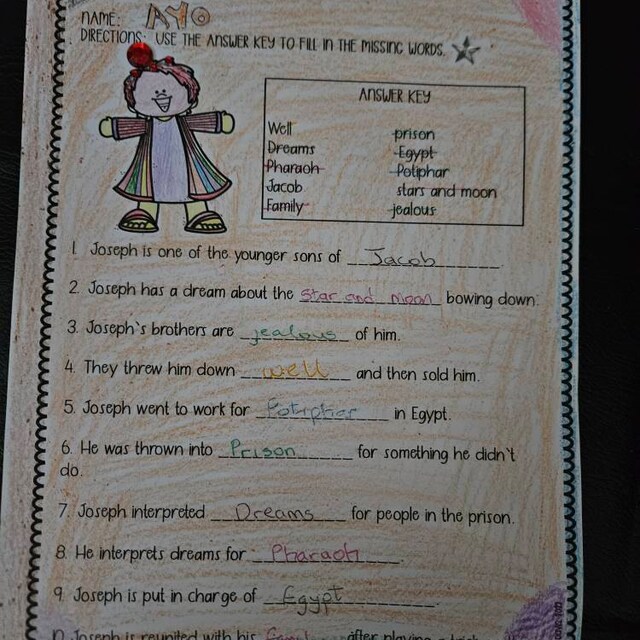 NAME: AYO
DIRECTIONS: USE THE ANSWER KEY TO FILL IN THE MISSING WORDS.
ANSWER KEY
Well prison
Dreams Egypt
Pharaoh Potiphar
Jacob stars and moon
Family jealous
1. Joseph is one of the younger sons of Jacob.
2. Joseph has a dream about the star and moon bowing down.
3. Joseph's brothers are jealous of him.
4. They threw him down well and then sold him.
5. Joseph went to work for Potiphar in Egypt.
6. He was thrown into Prison for something he didn't
do.
7. Joseph interpreted Dreams for people in the prison.
8. He interprets dreams for Pharaoh.
9. Joseph is put in charge of Egypt.
10. Joseph is reunited with his family after playing a